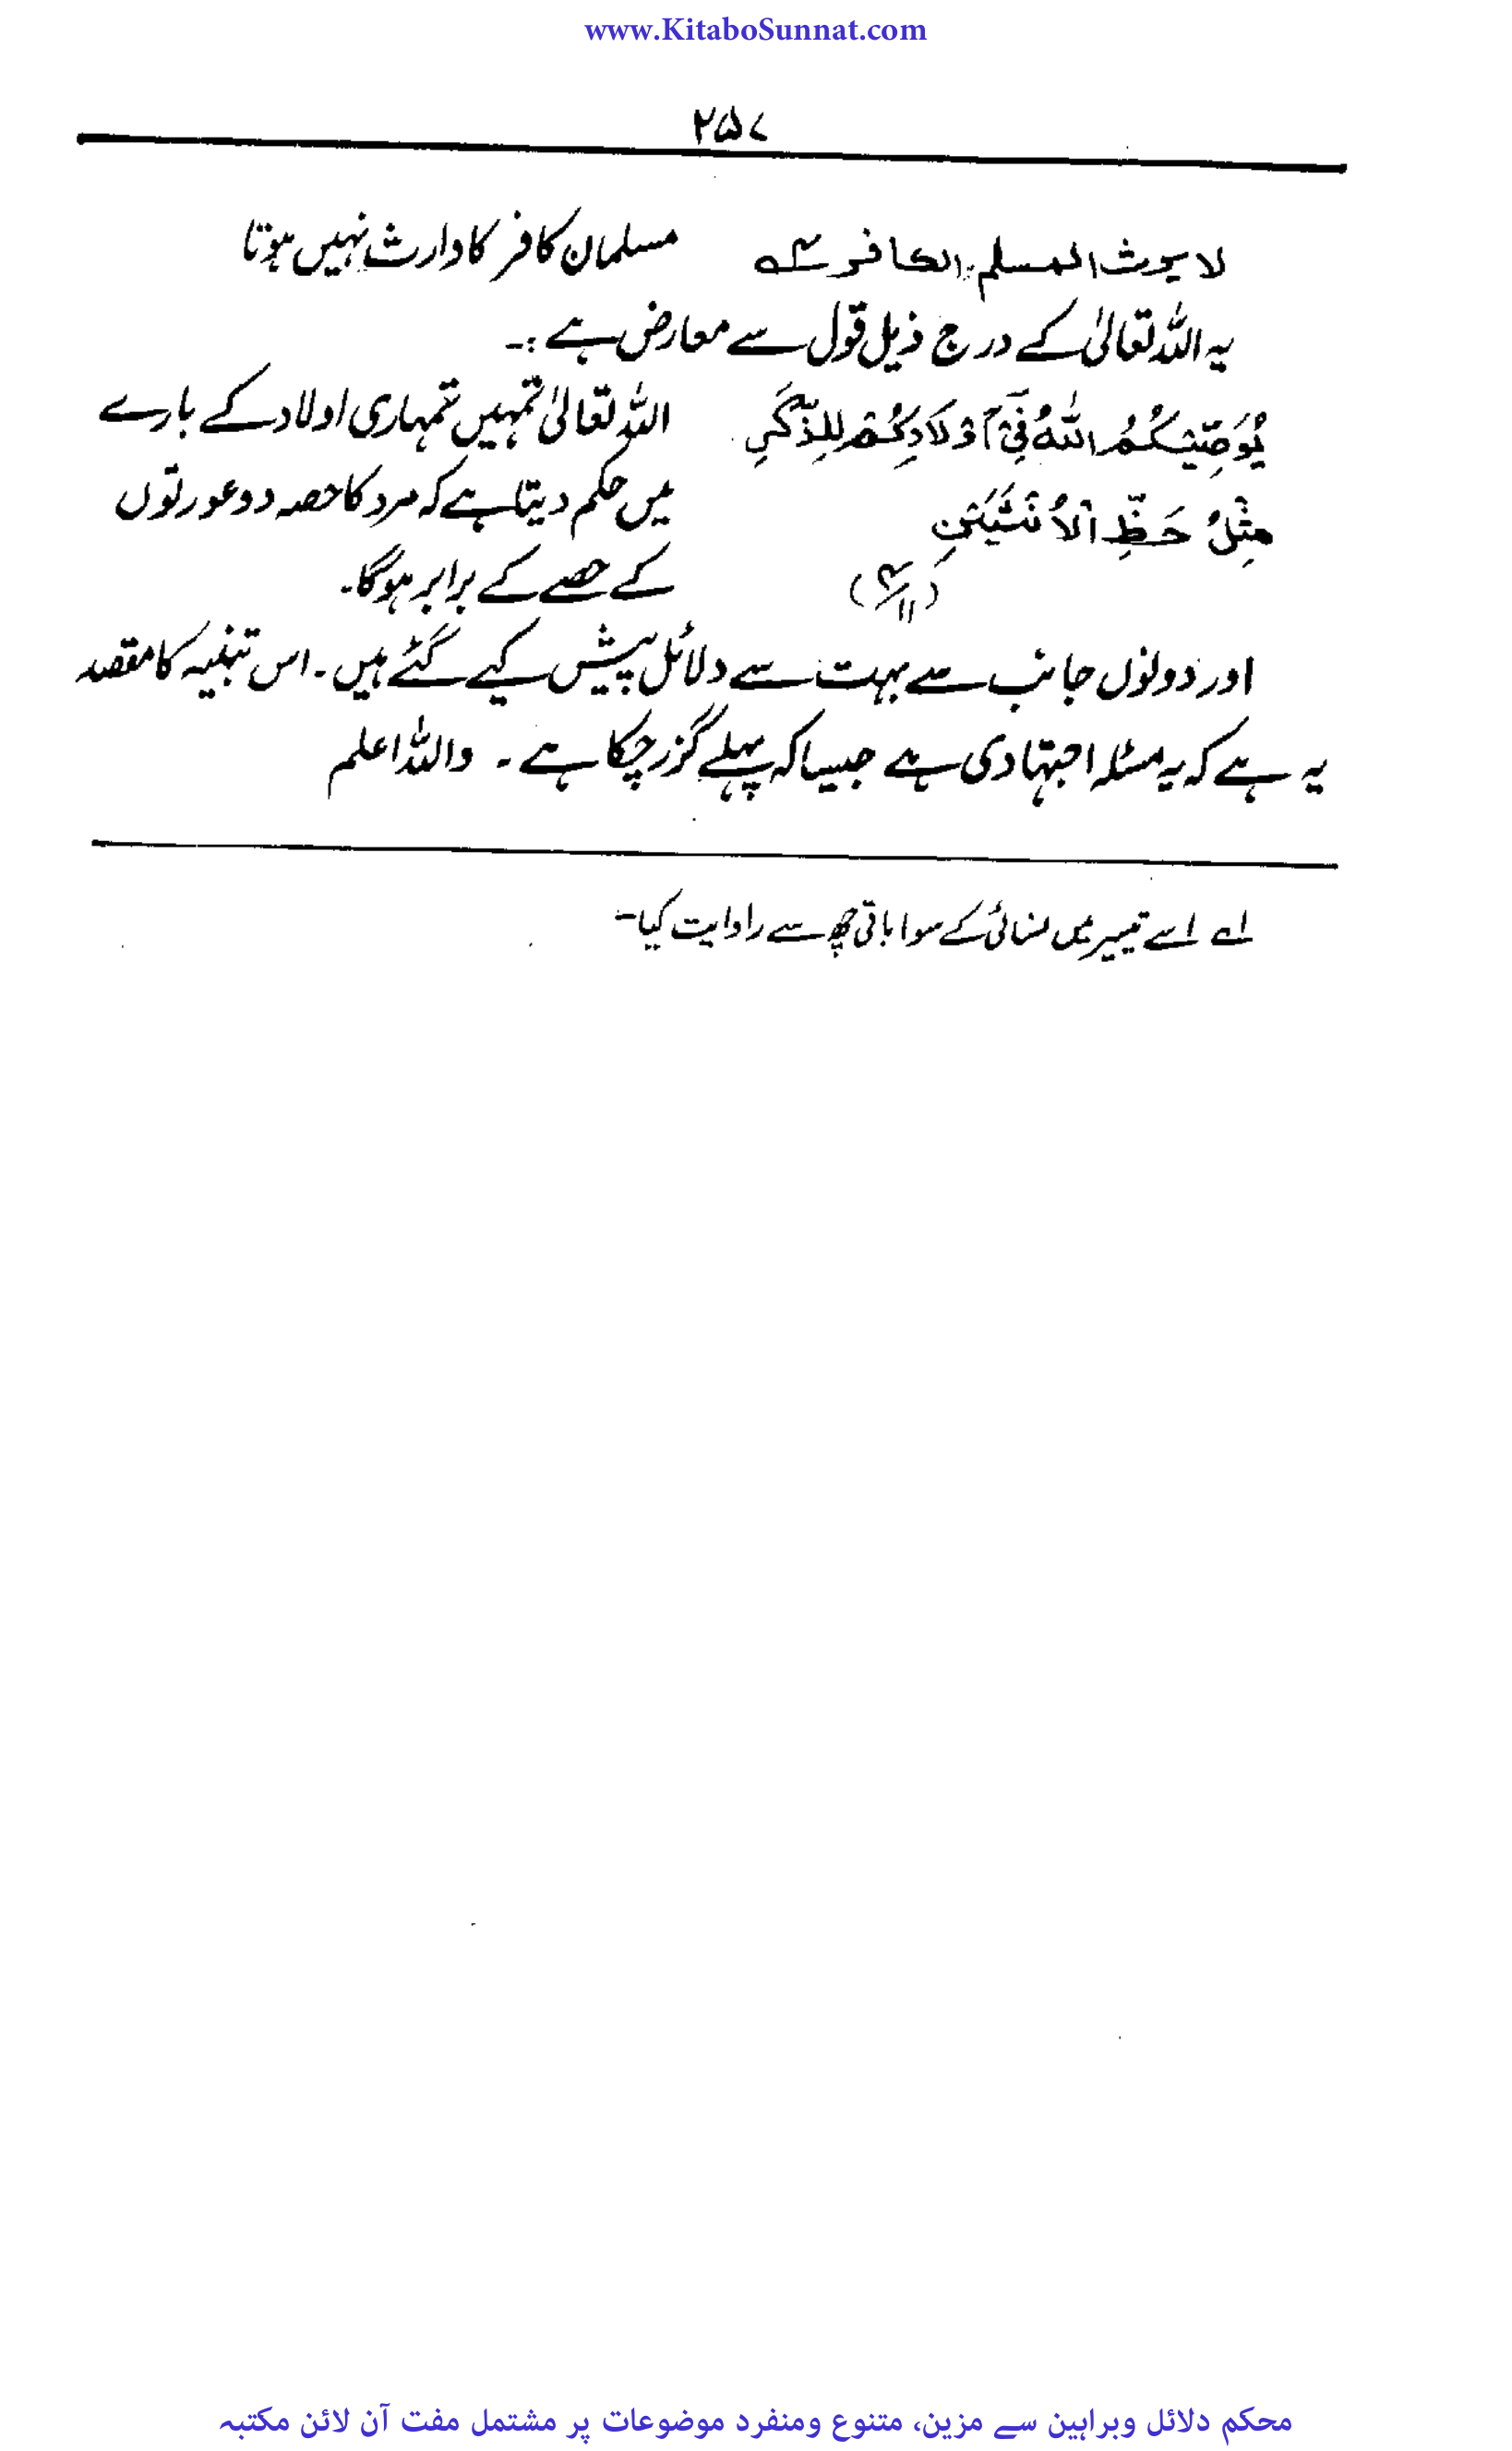 www.KitaboSunnat.com
۲۵۷
لا يرث المسلم الكافر لہ مسلمان کافر کا وارث نہیں ہوتا
یہ اللہ تعالیٰ کے درج ذیل قول سے معارض ہے :۔
يُوصِيْكُمُ اللهُ فِيْٓ اَوْلَادِكُمْ لِلذَّكَرِ اللہ تعالیٰ تمہیں تمہاری اولاد کے بارے
مِثْلُ حَظِّ الْاُنْثَيَيْنِ میں حکم دیتا ہے کہ مرد کا حصہ دو عورتوں
(۴/۱۱) کے حصے کے برابر ہوگا۔
اور دونوں جانب سے بہت سے دلائل پیش کیے گئے ہیں۔ اس تنبیہ کا مقصد
یہ ہے کہ یہ مسئلہ اجتہادی ہے جیسا کہ پہلے گزر چکا ہے۔ واللہ اعلم
لہ اسے تیسیر میں نسائی کے سوا باقی چھ سے راوایت کیا۔
محکم دلائل وبراہین سے مزین، متنوع ومنفرد موضوعات پر مشتمل مفت آن لائن مکتبہ